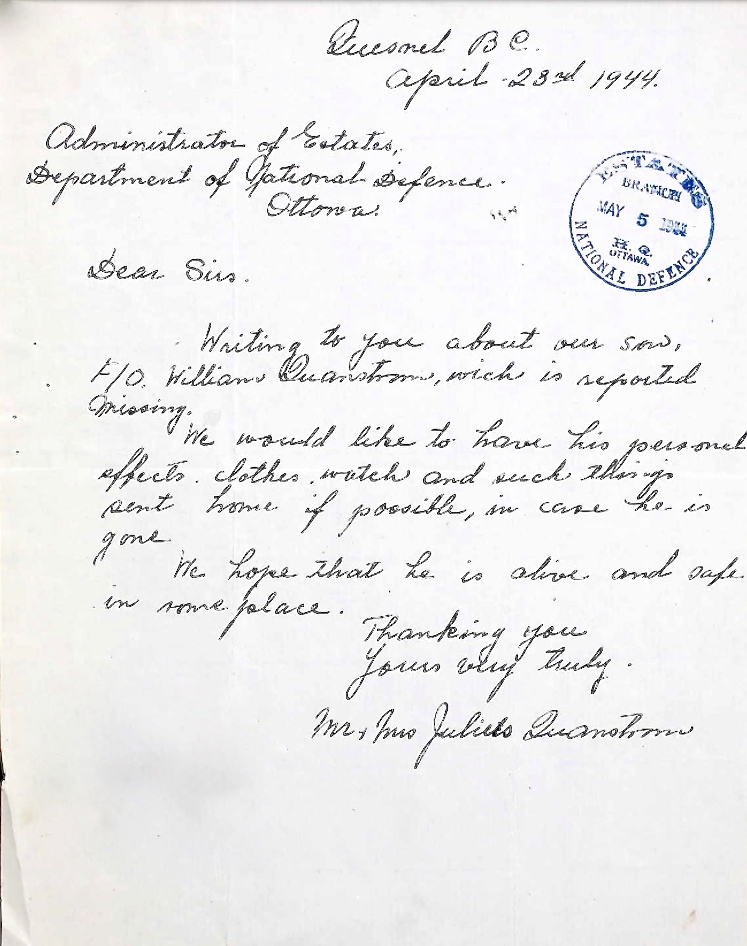 Quesnel B C.
April 23rd 1944.
Administrator of Estates,
Department of National Defence.
Ottowa.
ESTATES
BRANCH
MAY 5 1944
H. Q.
OTTAWA.
NATIONAL DEFENCE
Dear Sirs.
Writing to you about our son,
F/O. William Quanstrom, wich is reported
Missing.
We would like to have his personel
effects. clothes, watch and such things
sent home if possible, in case he is
gone.
We hope that he is alive and safe
in some place.
Thanking you
Yours very truly.
Mr & Mrs Julius Quanstrom